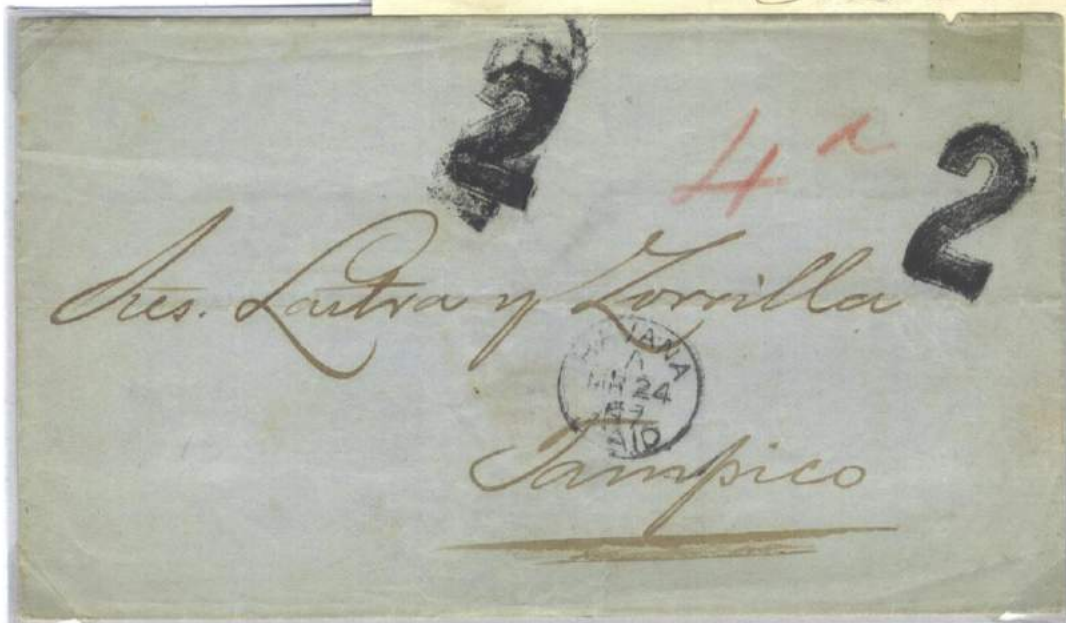 2
4ª
2
Sres. Lastra y Zorrilla
HAVANA
A
MR 24
67
PAID
Tampico